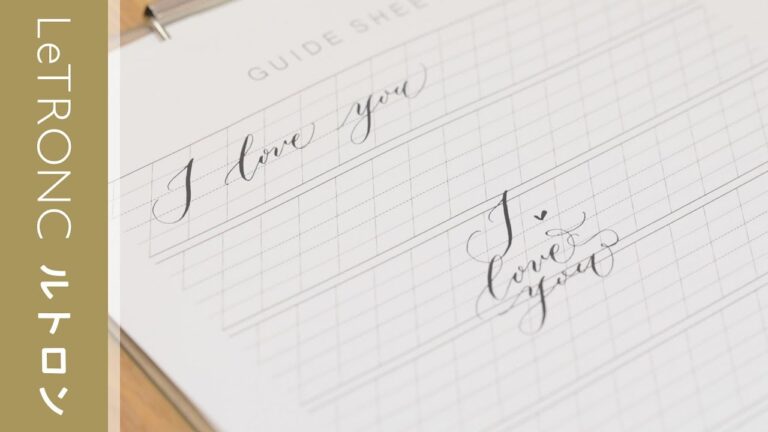 LeTRONC ルトロン
GUIDE SHEE
I love you
I
love
you